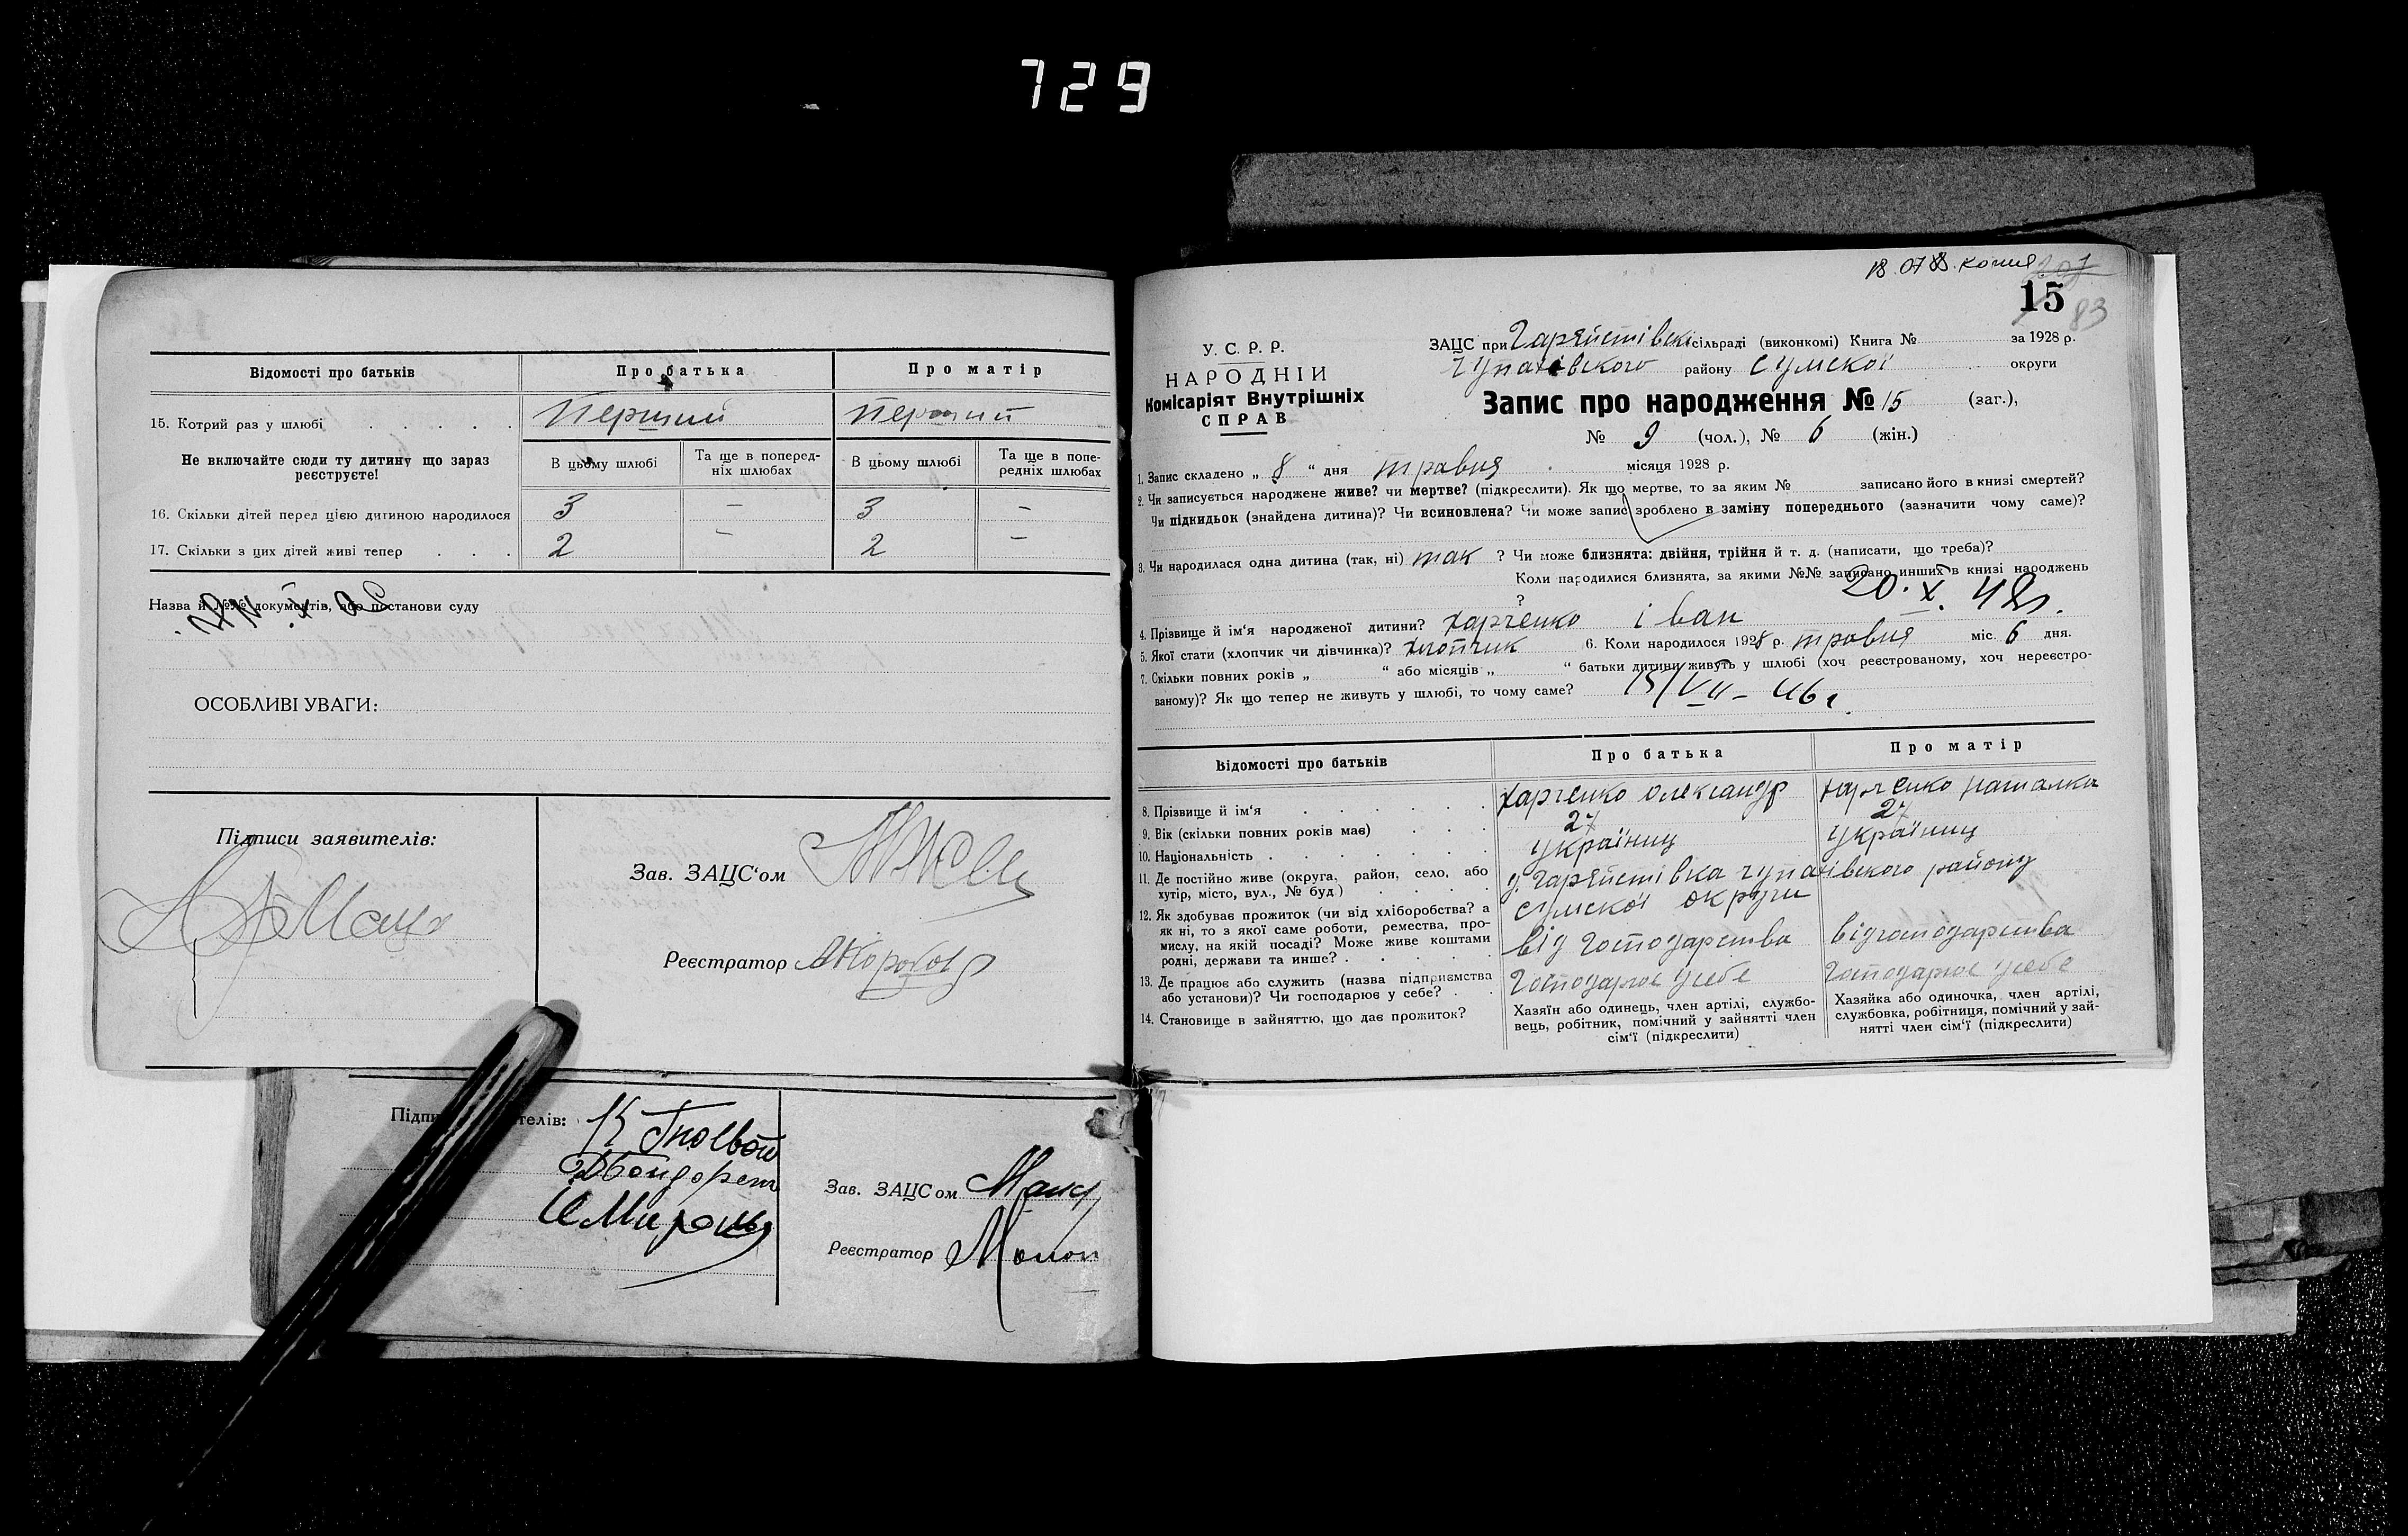 729
Відомості про батьків
Про батька
Про матір
15. Котрий раз у шлюбі
Перший
Перший
Не включайте сюди ту дитину що зараз реєструєте!
В цьому шлюбі
Та ще в поперед-
ніх шлюбах
В цьому шлюбі
Та ще в попе-
редніх шлюбах
16. Скільки дітей перед цією дитиною народилося
3
–
3
–
17. Скільки з цих дітей живі тепер
2
–
2
–
Назва й №№ документів, або постанови суду
ОСОБЛИВІ УВАГИ:
Підписи заявителів:
Зав. ЗАЦС‘ом
Реєстратор
Зав. ЗАЦСом
Реєстратор
копия
15
83
У. С. Р. Р.
НАРОДНІЙ
Комісаріят Внутрішніх
СПРАВ
ЗАЦС при сільраді (виконкомі) Книга № за 1928 р.
району Сумської округи
Запис про народження № 15 (заг.),
№ 9 (чол.), № 6 (жін.)
1. Запис складено „ 8 “ дня травня місяця 1928 р.
2. Чи записується народжене живе? чи мертве? (підкреслити). Як що мертве, то за яким № записано його в книзі смертей?
Чи підкидьок (знайдена дитина)? Чи всиновлена? Чи може запис зроблено в заміну попереднього (зазначити чому саме)?
3. Чи народилася одна дитина (так, ні) так ? Чи може близнята: двійня, трійня й т. д. (написати, що треба)?
Коли народилися близнята, за якими №№ записано инших в книзі народжень
?
20.X.48г.
4. Прізвище й ім‘я народженої дитини? Харченко іван
5. Якої стати (хлопчик чи дівчинка)? хлопчик 6. Коли народилося 1928 р. травня міс. 6 дня.
7. Скільки повних років „ “ або місяців „ “ батьки дитини живуть у шлюбі (хоч реєстрованому, хоч нереєстро-
ваному)? Як що тепер не живуть у шлюбі, то чому саме?
15/VII – 46г.
Відомості про батьків
Про батька
Про матір
8. Прізвище й ім‘я
Харченко Олександр
Харченко Наталка
9. Вік (скільки повних років має)
27
27
10. Національність
Українец
Українец
11. Де постійно живе (округа, район, село, або
хутір, місто, вул., № буд)
Сумської округи
12. Як здобуває прожиток (чи від хліборобства? а
як ні, то з якої саме роботи, ремества, про-
мислу, на якій посаді? Може живе коштами
родні, держави та инше?
від господарства
від господарства
13. Де працює або служить (назва підприємства
або установи)? Чи господарює у себе?
Господарює у себе
Господарює у себе
14. Становище в зайняттю, що дає прожиток?
Хазяїн або одинець, член артілі, службо-
вець, робітник, помічний у зайнятті член
сім‘ї (підкреслити)
Хазяйка або одиночка, член артілі,
службовка, робітниця, помічний у зай-
нятті член сім‘ї (підкреслити)